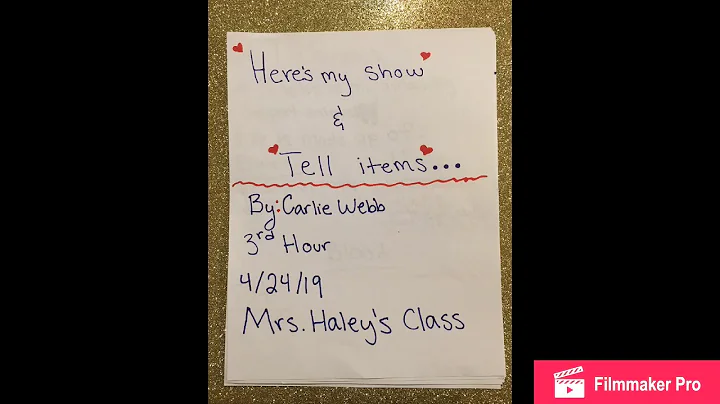 Here's my show
&
Tell items...
By: Carlie Webb
3rd Hour
4/24/19
Mrs. Haley's Class
Filmmaker Pro